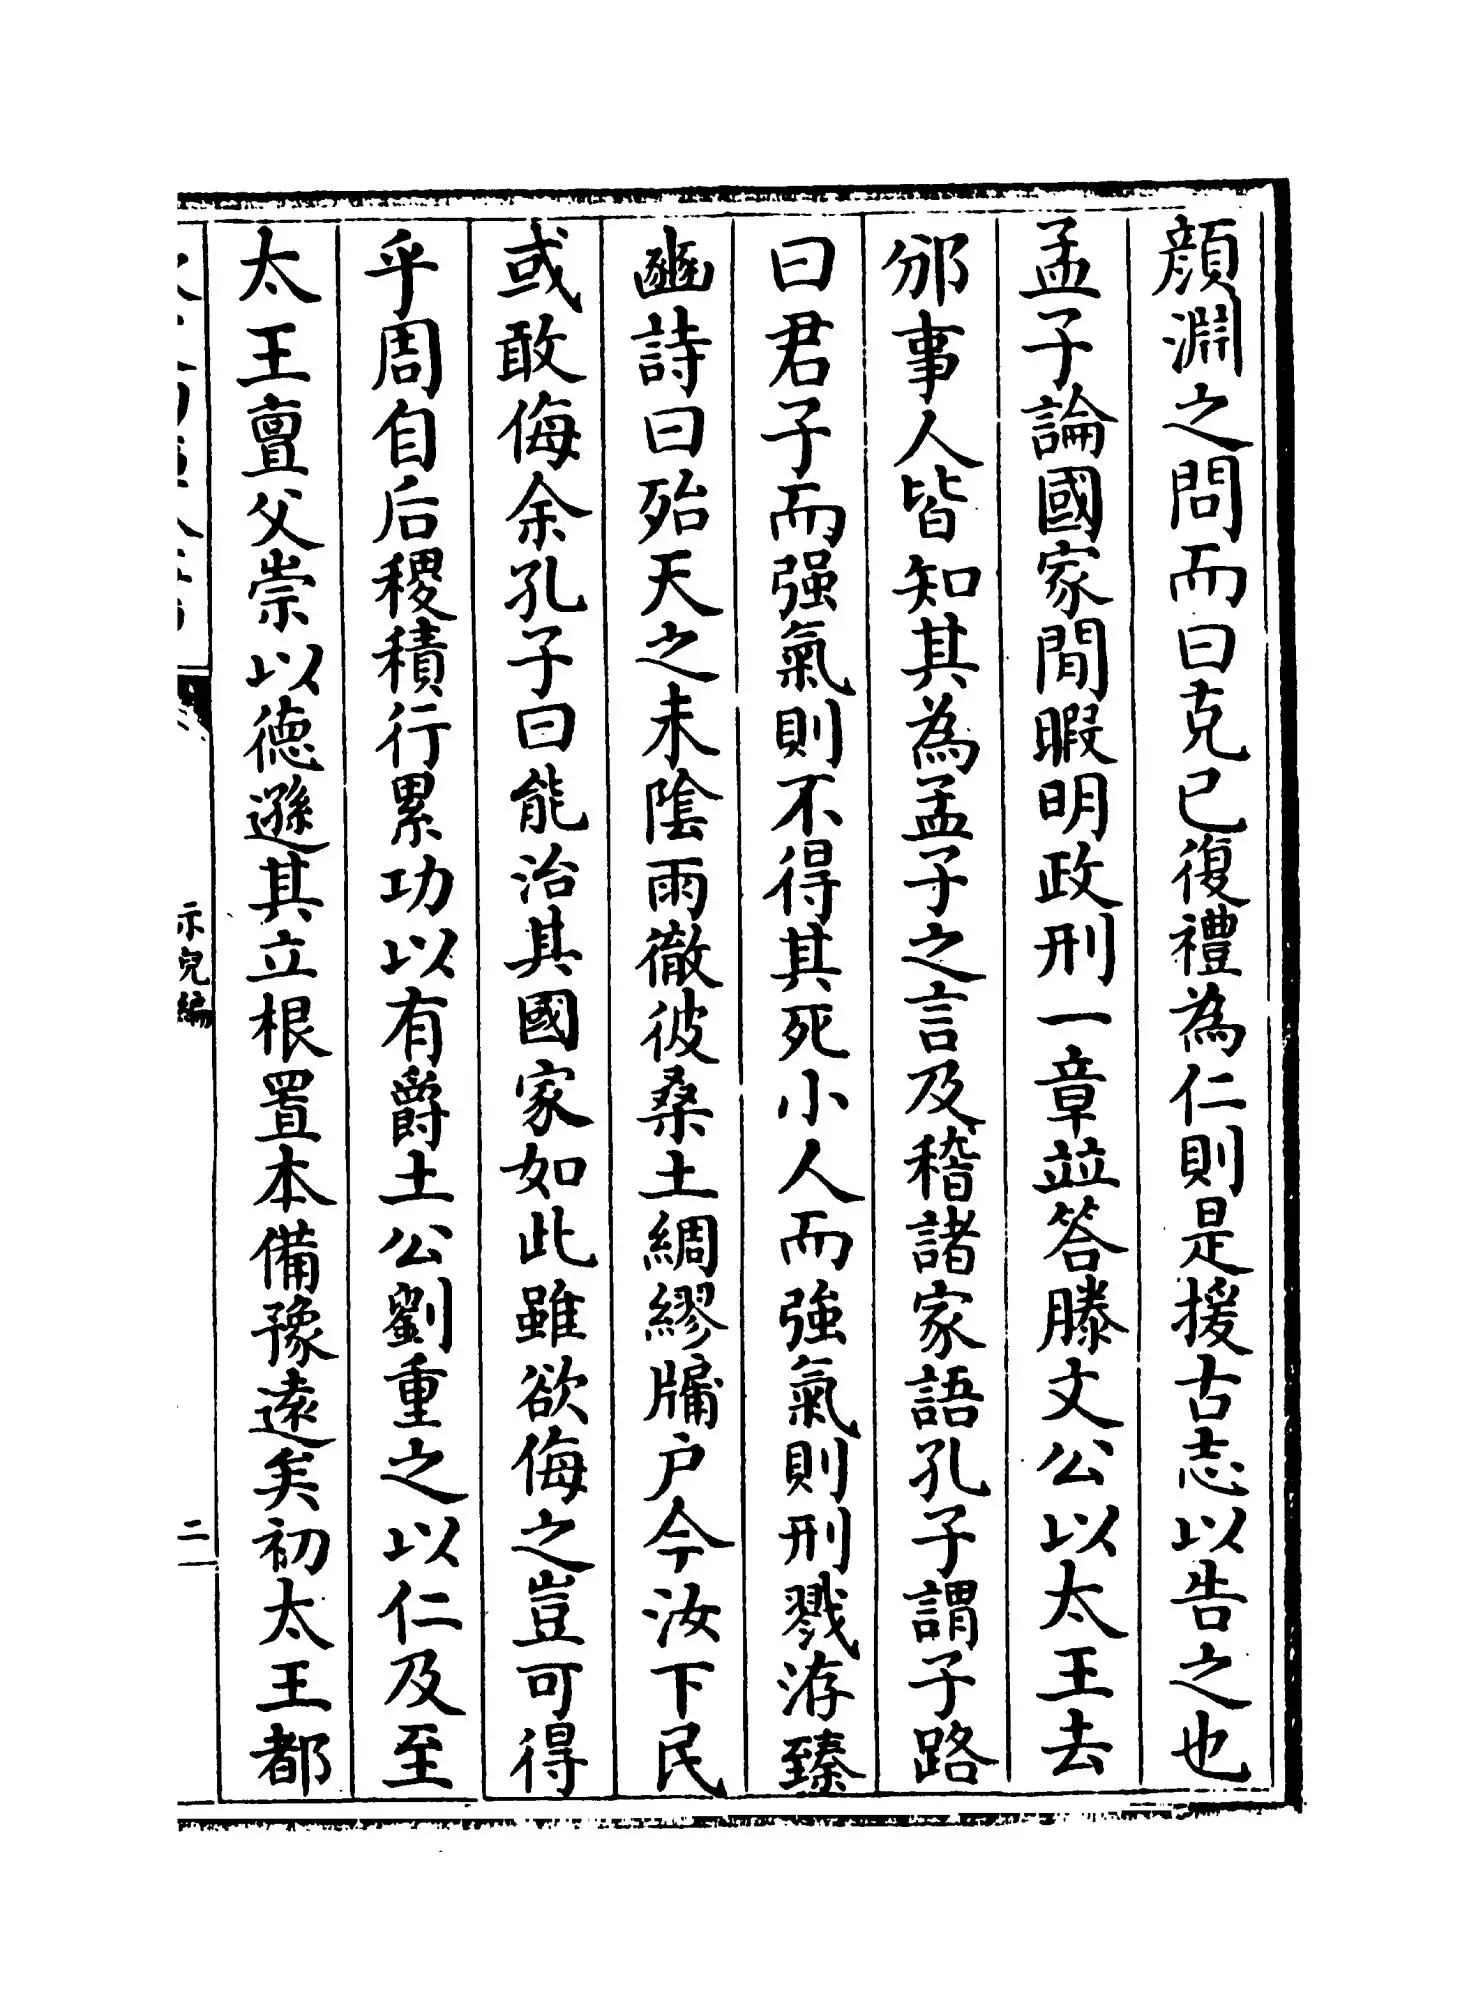 顏淵之問而曰克已復禮為仁則是援古志以告之也
孟子論國家閒暇明政刑一章並答滕文公以太王去
邠事人皆知其為孟子之言及稽諸家語孔子謂子路
曰君子而强氣則不得其死小人而強氣則刑戮洊臻
豳詩曰殆天之未陰雨徹彼桑土綢繆牖户今汝下民
或敢侮余孔子曰能治其國家如此雖欲侮之豈可得
乎周自后稷積行累功以有爵土公劉重之以仁及至
太王亶父崇以德遜其立根置本備豫遠矣初太王都
示兒編
二